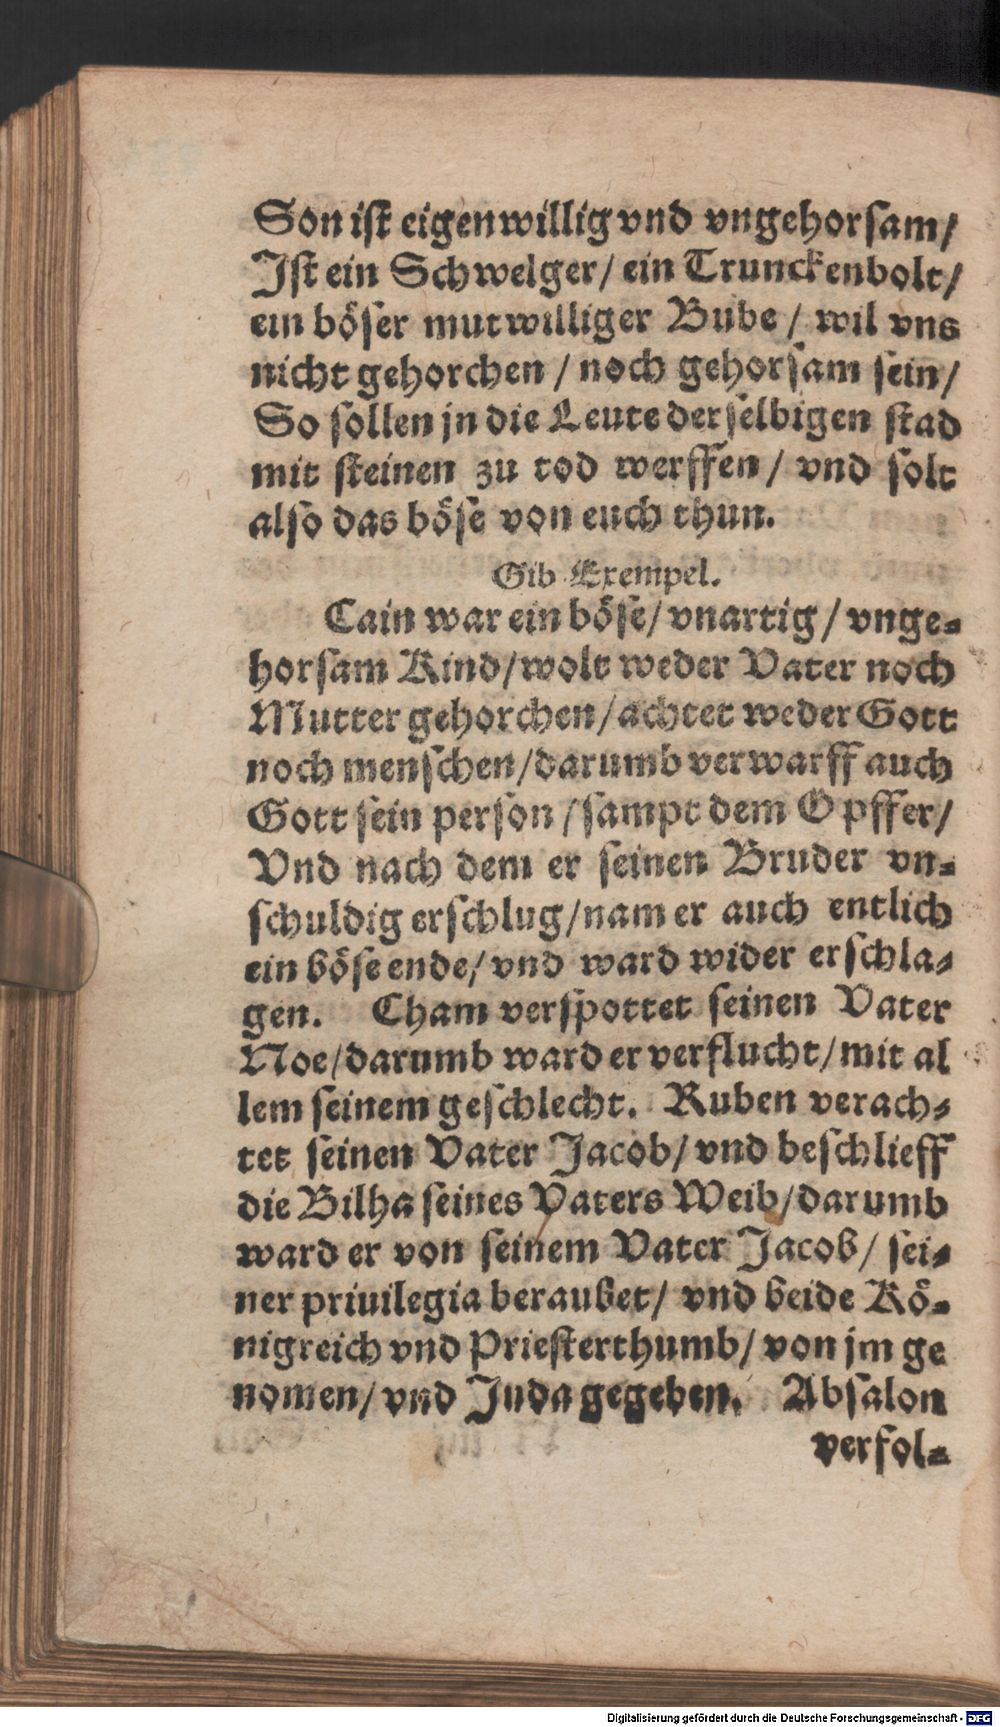 Son ist eigenwillig vnd vngehorsam/
Ist ein Schwelger/ ein Trunckenbolt/
ein böser mutwilliger Bube / wil vns
nicht gehorchen / noch gehorsam sein/
So sollen jn die Leute derselbigen stad
mit steinen zu tod werffen / vnd solt
also das böse von euch thun.
Gib Exempel.
Cain war ein böse/ vnartig / vnge-
horsam Kind/ wolt weder Vater noch
Mutter gehorchen/ achtet weder Gott
noch menschen/ darumb verwarff auch
Gott sein person / sampt dem Opffer/
Vnd nach dem er seinen Bruder vn-
schuldig erschlug/ nam er auch entlich
ein böse ende/ vnd ward wider erschla-
gen. Cham verspottet seinen Vater
Noe/ darumb ward er verflucht/ mit al
lem seinem geschlecht. Ruben verach-
tet seinen Vater Jacob/ vnd beschlieff
die Bilha seines Vaters Weib/ darumb
ward er von seinem Vater Jacob/ sei-
ner priuilegia beraubet/ vnd beide Kö-
nigreich vnd Priesterthumb/ von jm ge
nomen/ vnd Juda gegeben. Absalon
verfol-
Digitalisierung gefördert durch die Deutsche Forschungsgemeinschaft - DFG